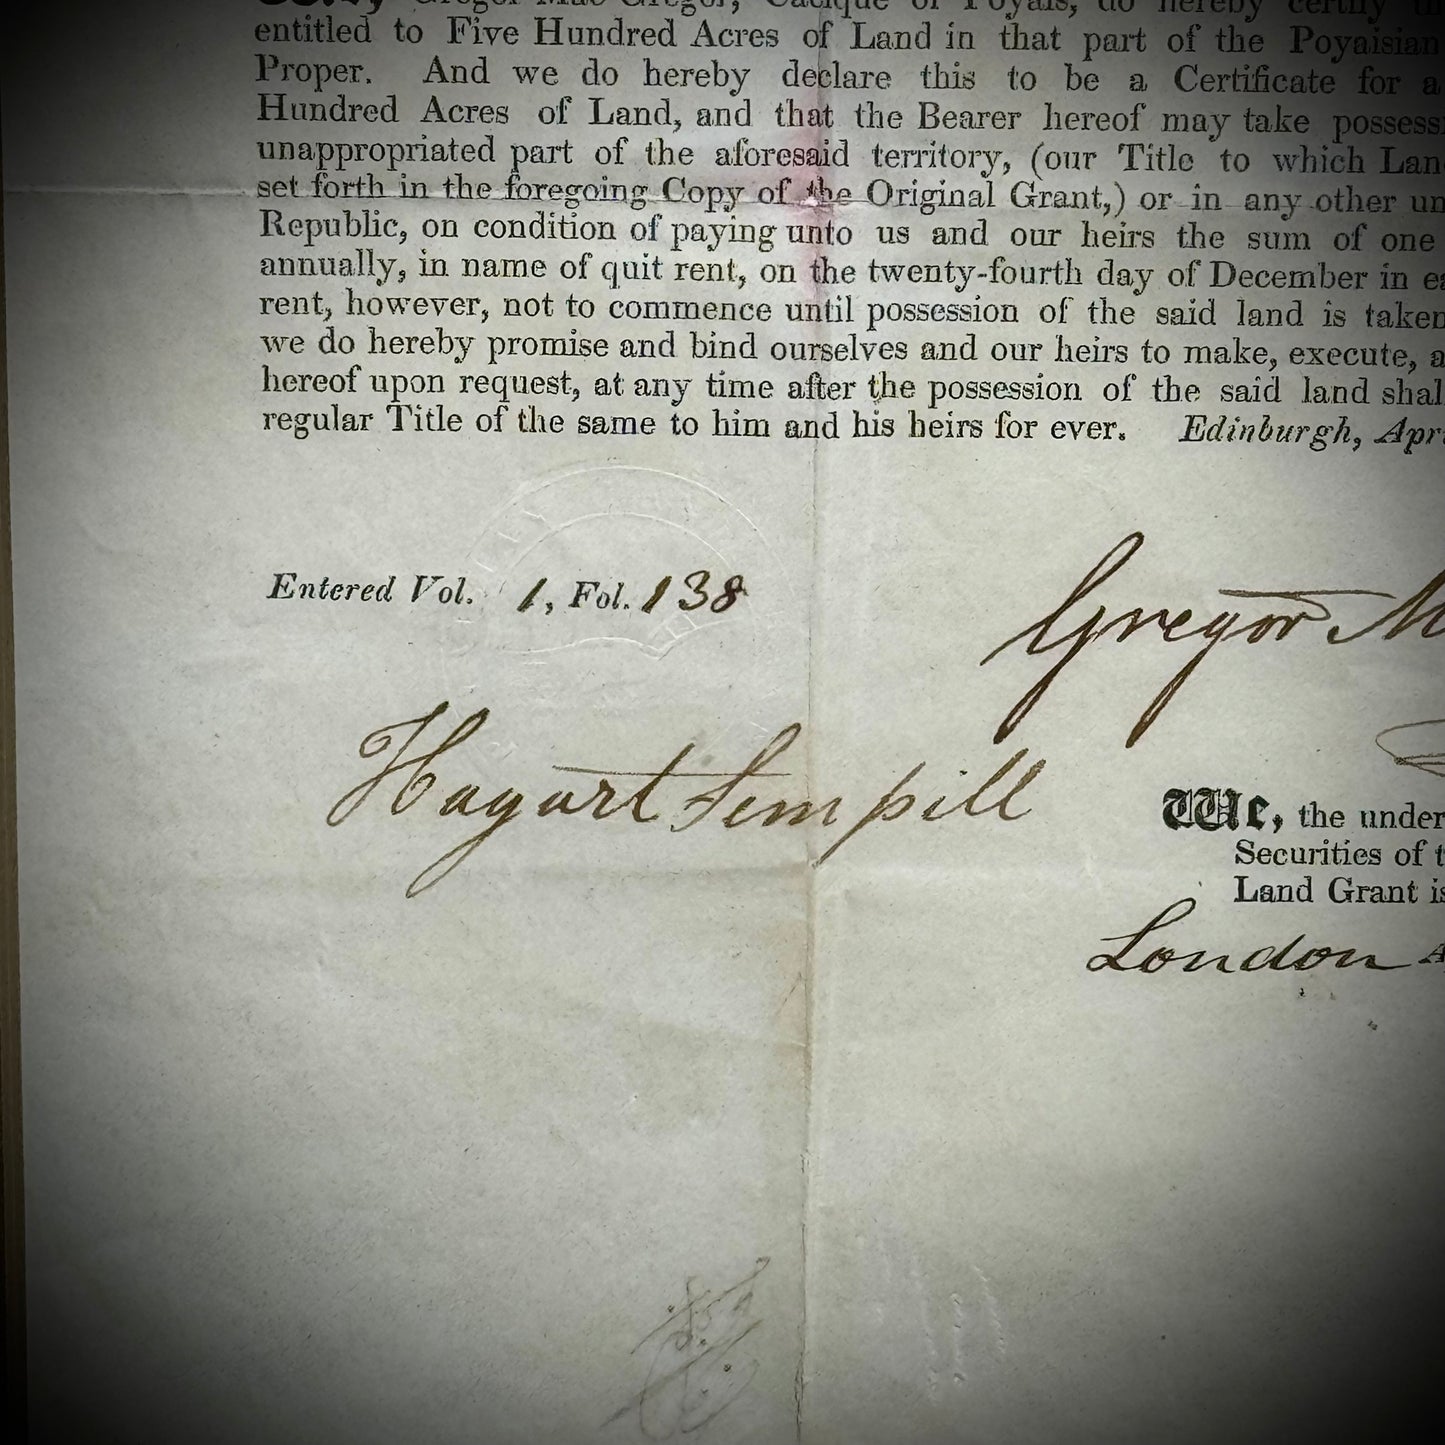 Gregor Mac Gregor, Cacique of Poyais, do hereby certify
entitled to Five Hundred Acres of Land in that part of the Poyaisian
Proper. And we do hereby declare this to be a Certificate for a
Hundred Acres of Land, and that the Bearer hereof may take possess
unappropriated part of the aforesaid territory, (our Title to which Lan
set forth in the foregoing Copy of the Original Grant,) or in any other un
Republic, on condition of paying unto us and our heirs the sum of one
annually, in name of quit rent, on the twenty-fourth day of December in ea
rent, however, not to commence until possession of the said land is taken
we do hereby promise and bind ourselves and our heirs to make, execute, a
hereof upon request, at any time after the possession of the said land shal
regular Title of the same to him and his heirs for ever. Edinburgh, Apr
Entered Vol. 1, Fol. 138
Gregor M
Hagart Sempill
We, the under
Securities of t
Land Grant is
London A